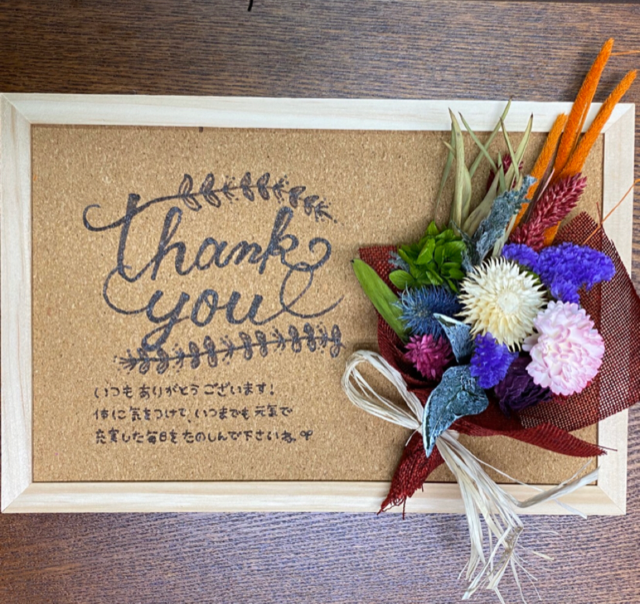 thank
you
いつもありがとうございます!
体に気をつけて、いつまでも元気で
充実した毎日をたのしんで下さいね。